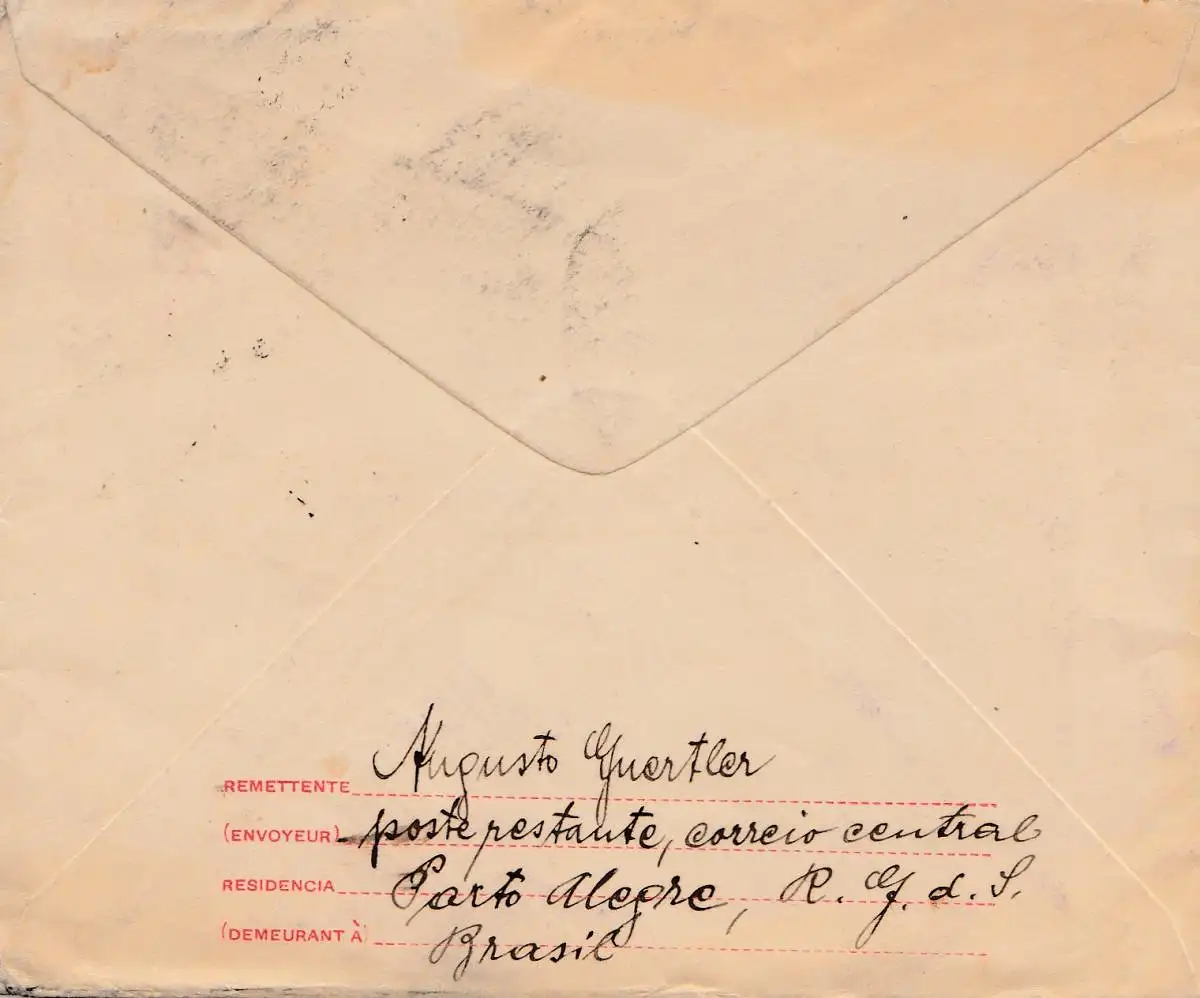 REMETTENTE Augusto Guertler
(ENVOYEUR) poste restante, correio central
RESIDENCIA Porto Alegre, R. G. d. S.
(DEMEURANT À) Brasil